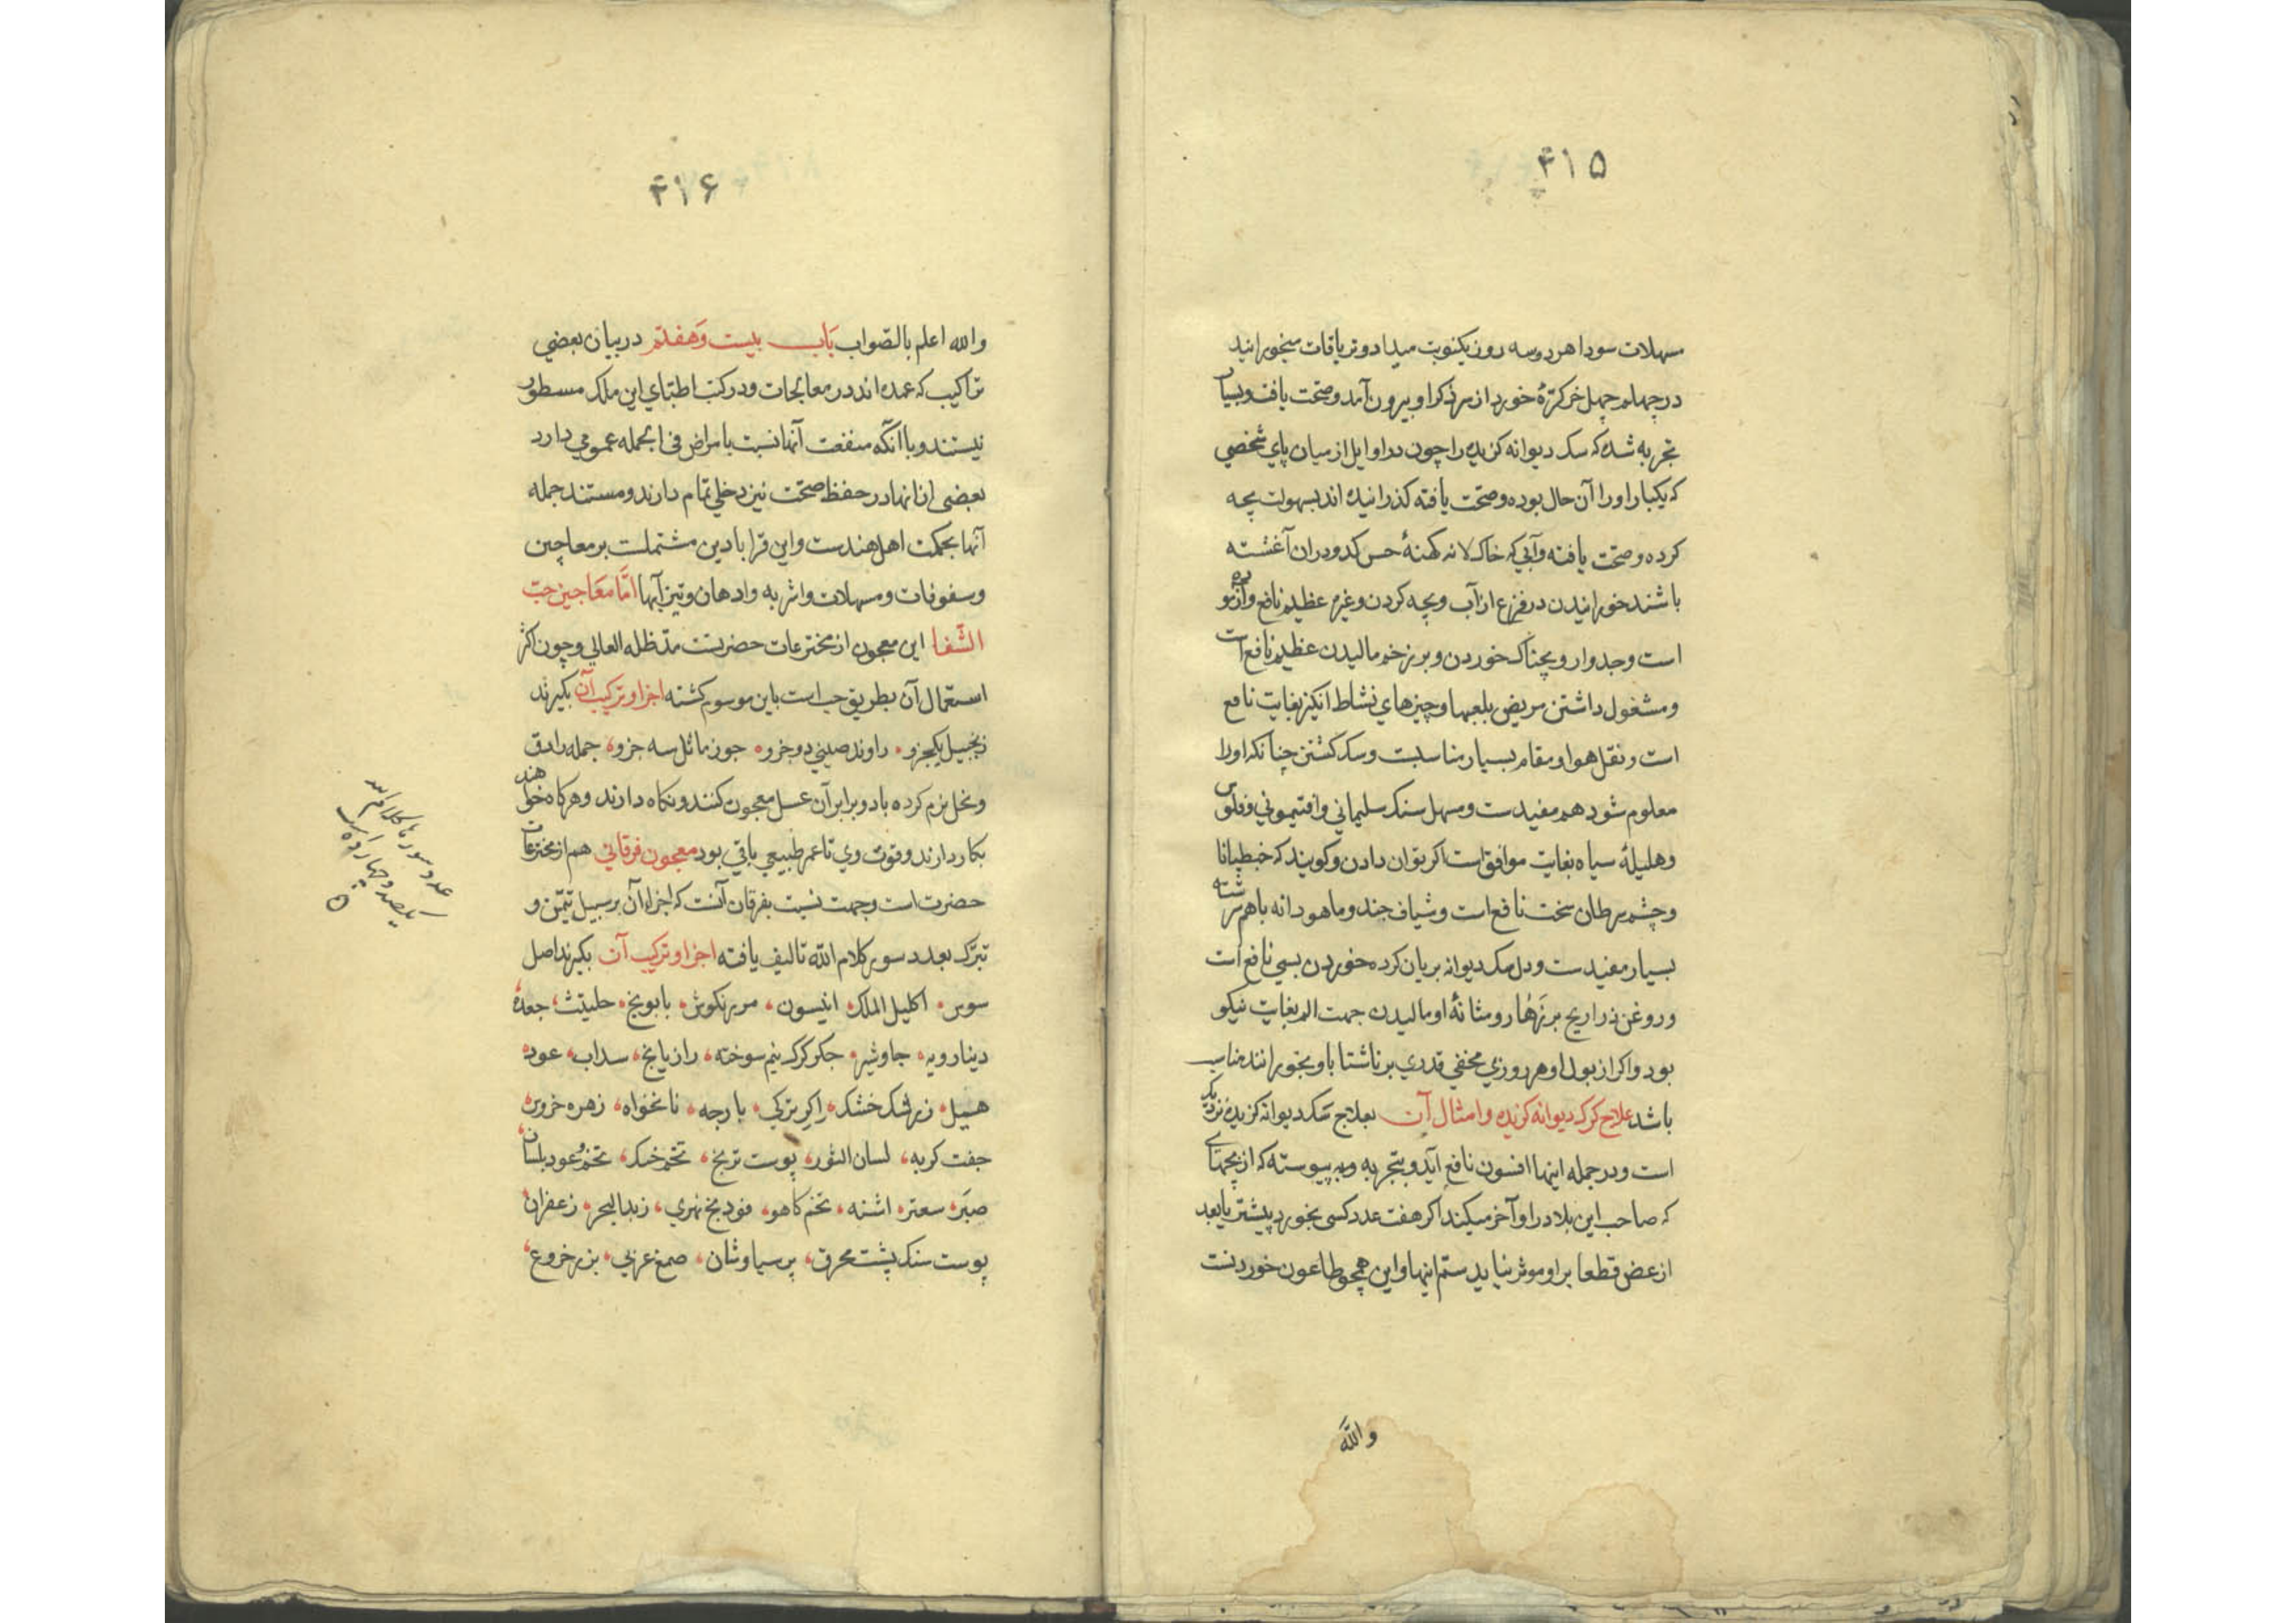 ۴۱۵
مسهلات سودا هر دو سه روز یکنوبت میداد و تریاقات میخورانید
در چهلم چهل خر کرّهٔ خورد از سر ذکر او بیرون آمد و صحّت یافت و بسیار
تجربه شده که سک دیوانه کزیده را چون در اوایل از میان پای شخصی
که یکبار او را آن حال بوده و صحّت یافته کذرانیده اند بسهولت بچه
کرده و صحّت یافته و آبی که خاک لانه کهنهٔ در آن آغشته
باشند خورانیدن در فزع از آب و بچه کردن و غیره عظیم نافع و آزموده
است و جدوار و بچناک خوردن و بر زخم مالیدن عظیم نافع است
و مشغول داشتن مریض بلعبها و چیزهای نشاط انکیز بغایت نافع
است و نقل هوا و مقام بسیار مناسبت و سک کشتن چنانکه او را
معلوم شود هم مفیدست و مسهل سنک سلیمانی و افتیمونی و فلوس
و هلیلهٔ سیاه بغایت موافق است اکر بتوان دادن و کویند که خبطیانا
و چشم سرطان سخت نافع است و شیاف جند و ماهودانه باهم سرشته
بسیار مفیدست و دل سک دیوانه بریان کرده خوردن بسی نافع است
و روغن ذراریح بر زهار و مثانهٔ او مالیدن جهت الم بغایت نیکو
بود و اکر از بول او هر روزی مخفی قدری بر ناشتا باو بخورانند مناسب
باشد علاج کرک دیوانه کزیده و امثال آن بعلاج سک دیوانه کزیده نزدیک
است و در جمله اینها افسون نافع آید و بتجربه پیوسته که از بچهای
که صاحب این بلا در اواخر میکند اکر هفت عدد کسی بخورد پیشتر یا بعد
از عض قطعا بر او موثر نیاید ستم اینها و این همچو طاعون خوردنست
والله
۴۱۶
والله اعلم بالصّواب باب بیست و هفتم در بیان بعضی
تراکیب که عمده اند در معالجات و در کتب اطبّای این ملک مسطور
نیستند و با آنکه منفعت آنها نسبت بامراض فی الجمله عمومی دارد
بعضی از انها در حفظ صحّت نیز دخلی تمام دارند و مستند جمله
آنها بحکمت اهل هندست و این قرابادین مشتملست بر معاجین
و سفوفات و مسهلات و اشربه و ادهان و تیزآبها امّا معاجین حبّ
الشّفا این معجون از مخترعات حضرتست مدّ ظله العالی و چون اکثر
استعمال آن بطریق حب است باین موسوم کشته اجزا و ترکیب آن بکیرند
زنجبیل یکجزو راوند صینی دو جزو جوز ماثل سه جزو جمله را دق
و نخل نرم کرده با دو برابر آن عسل معجون کنند و نکاه دارند و هرکاه خواهند
بکار دارند و قوت وی تا عمر طبیعی باقی بود معجون فرقانی هم از مخترعات
حضرت است و جهت نسبت بفرقان آنست که اجزاء آن بر سبیل تیمّن و
تبرّک بعدد سور کلام الله تالیف یافته اجزا و ترکیب آن بکیرند اصل
سوس اکلیل الملک انیسون مرزنکوش بابونج حلتیث جعدهٔ
دینارویه جاوشیر جکر کرک نیم سوخته رازیانج سداب عود
هیل زرشک خشک اکر ترکی بارجه نانخواه زهره خروس
جفت کربه لسان الثور پوست ترنج تخم خسک تخم عود بلسان
صبَر سعتر اشنه تخم کاهو فودنج نهری زبد البحر زعفران
پوست سنک پشت محرق پرسیاوشان صمغ عربی بزر خروع
عدد سورها کلام الله
یکصد و چهارده است